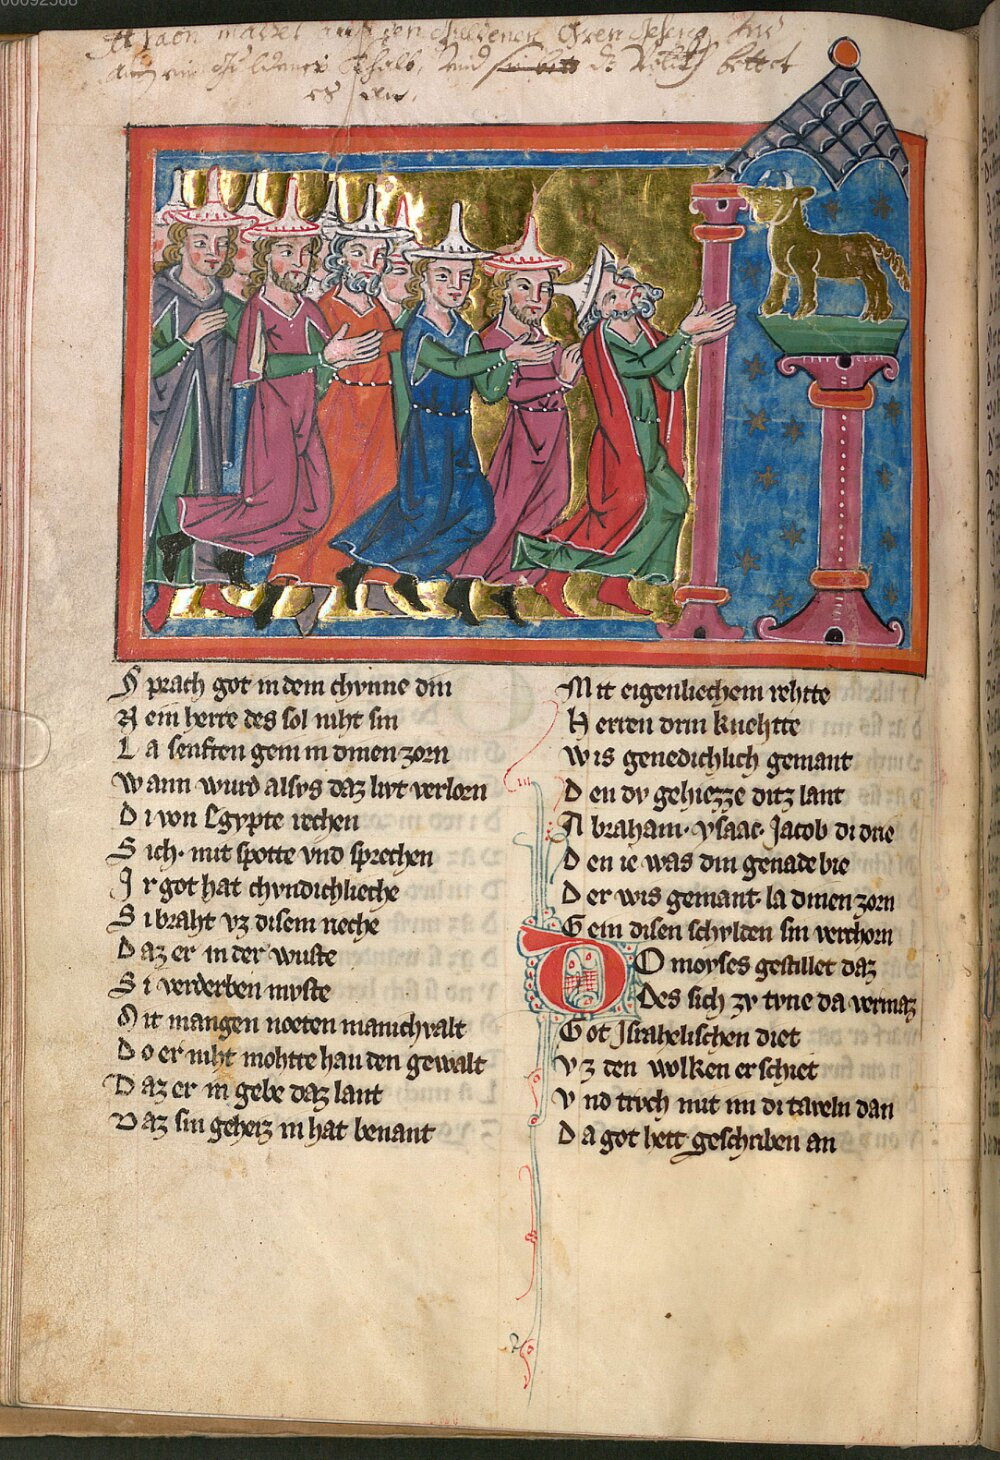 00092588
Aaron machet auß den guldenen Oren
ein guldenes Khalb, Und
es an.
Sprach got in dem chvnne din
Nein herre des sol niht sin
La senften gein in dinen zorn
Wann wurd alsvs daz livt verlorn
Di von Egypte iechen
Sich mit spotte vnd sprechen
Ir got hat chvndichlieche
Si braht vz disem rieche
Daz er in der wuste
Si verderben mvste
Mit mangen noeten manichvalt
Do er niht mohtte han den gewalt
Daz er in gebe daz lant
Daz sin geheiz in hat benant
Mit eigenliechem rehtte
Herren drin knehtte
Wis genedichlich gemant
Den dv gehiezze ditz lant
Abraham· ysaac· Jacob di drie
Den ie was din genade bie
Der wis gemant· la dinen zorn
Gein disen schvlden sin verchorn
DO moyses gestillet daz
Des sich zv tvne da vermaz
Got Israhelischen diet
Vz den wolken er schiet
Vnd trvch mit im di taveln dan
Da got hett geschriben an